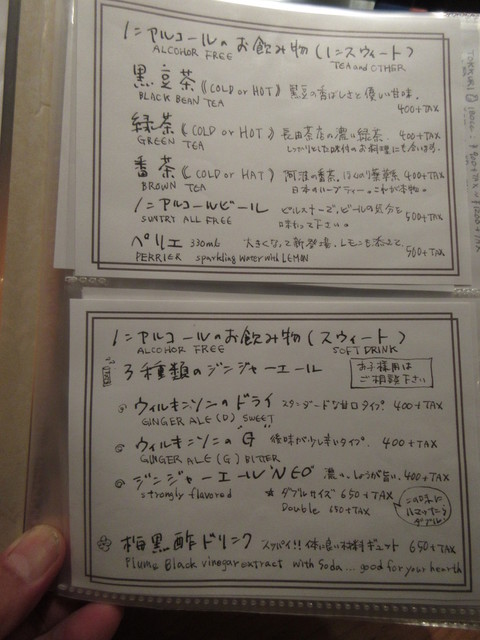 ノンアルコールのお飲み物（ノンスウィート）
ALCOHOR FREE TEA and OTHER
黒豆茶《COLD or HOT》黒豆の香ばしさと優しい甘味。
BLACK BEAN TEA 400+TAX
緑茶《COLD or HOT》長田茶店の濃い緑茶。 400+TAX
GREEN TEA しっかりとした味付のお料理にも合います。
番茶《COLD or HAT》阿波の番茶。ほんのり 400+TAX
BROWN TEA 日本のハーブティー。これが本物。
ノンアルコールビール ピルスナーで、ビールの気分を
SUNTRY ALL FREE 味わって下さい。 500+TAX
ペリエ 330ml 大きくなって新登場。レモンも添えて。
PERRIER sparkling water with LEMON 500+TAX
ノンアルコールのお飲み物（スウィート）
ALCOHOR FREE SOFT DRINK
3種類のジンジャーエール
お子様用は
ご相談下さい
ウィルキンソンのドライ スタンダードな甘口タイプ。 400+TAX
GINGER ALE (D) SWEET
ウィルキンソンの"G" 後味が少し辛いタイプ。 400+TAX
GINGER ALE (G) BITTER
ジンジャーエール"NEO" 濃い。しょうが旨い。 400+TAX
strongly flavored ★ダブルサイズ 650+TAX
Double 650+TAX
この味に
ハマったら
ダブル!
梅黒酢ドリンク スッパイ!!体に良い材料ギュット 650+TAX
Plume Black vinegar extract with Soda... good for your hearth